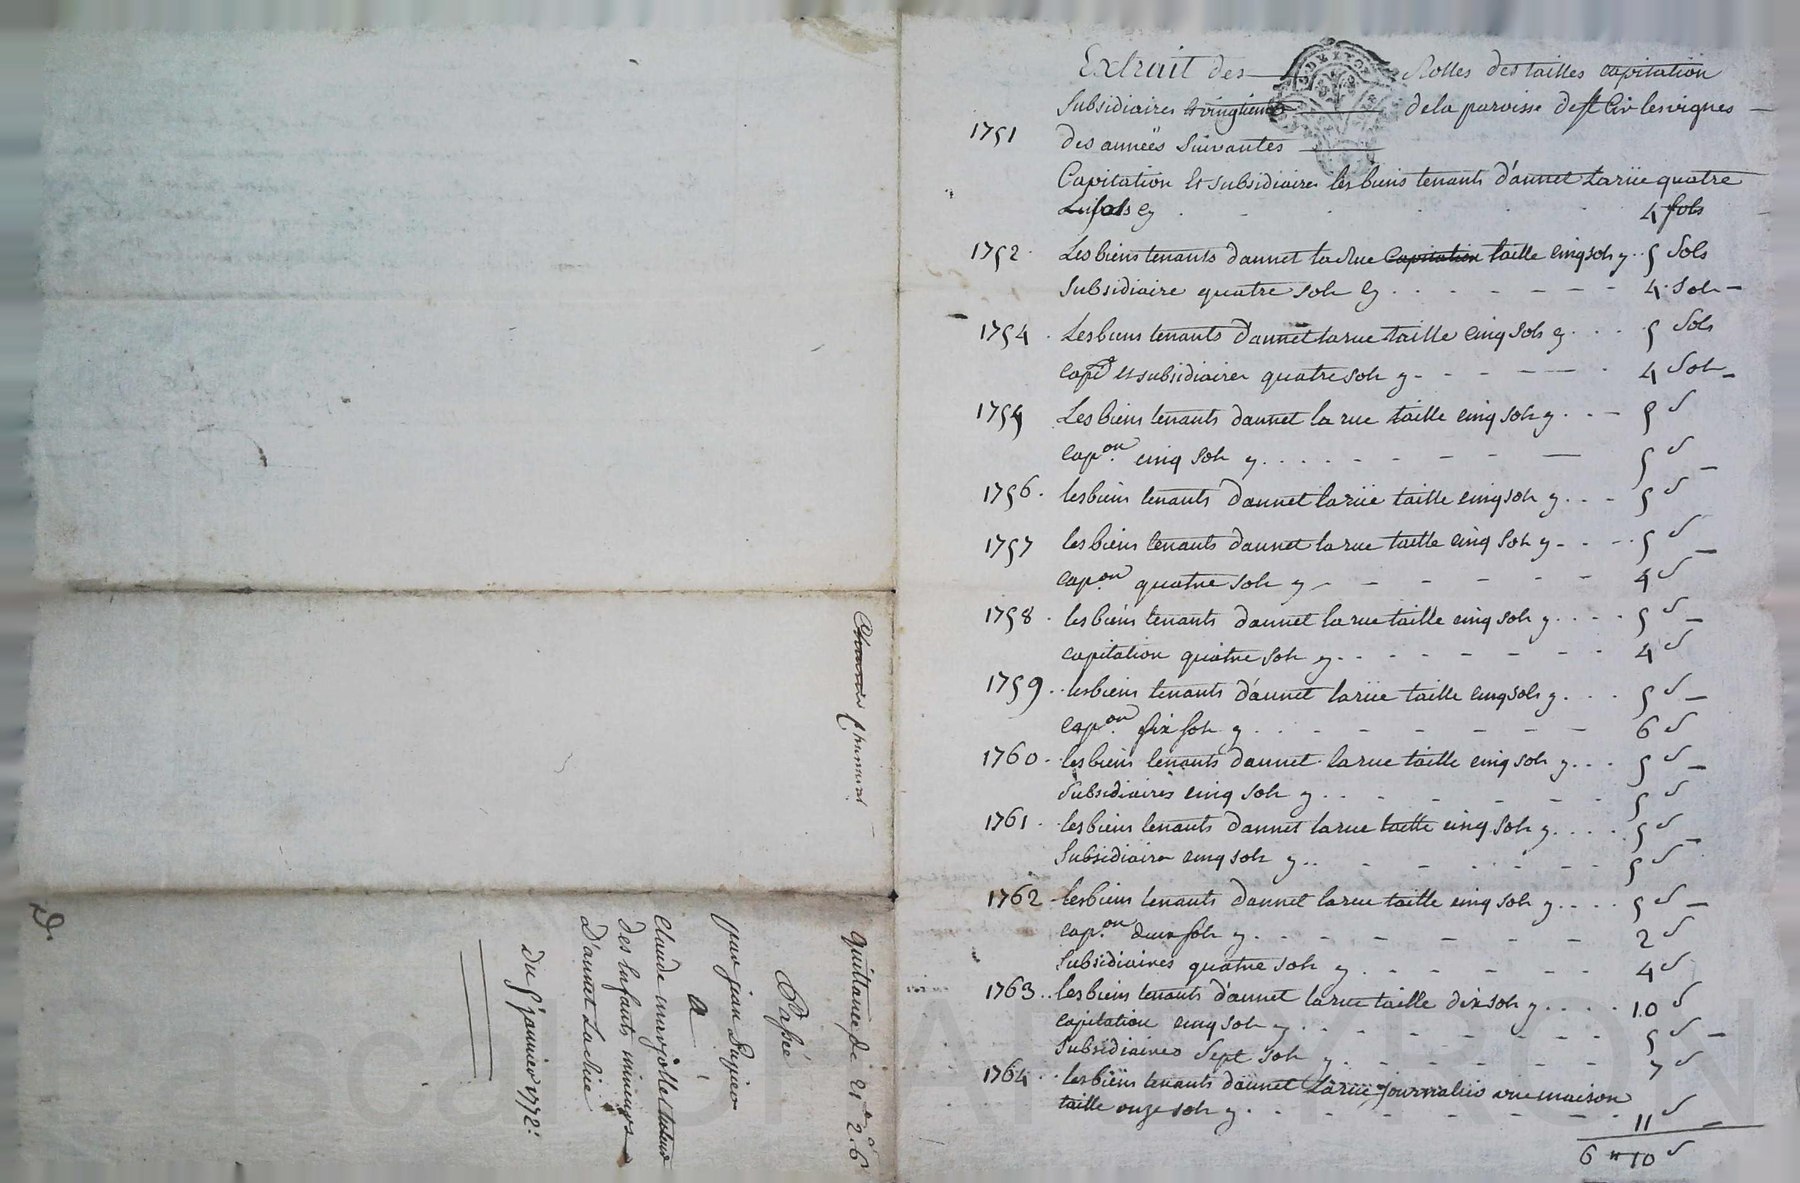 Extrait des Rolles des tailles capitation
Subsidiaires et vingtieme de la paroisse de st Cir les vignes
1751 des années Suivantes
Capitation et subsidiaires les biens tenants d'annet Larüe quatre
sols cy 4 sols
1752 Les biens tenants d'annet la Rue Capitation taille cinq sols cy 5 Sols
Subsidiaire quatre sols cy 4 Sols
1754 Les biens tenants d'annet larue taille cinq sols cy 5 Sols
et subsidiaires quatre sols cy 4 Sols
Les biens tenants d'annet la rue taille cinq sols cy 5 s
cap.on cinq sols cy 5 s
1756 les biens tenants d'annet larüe taille cinq sols cy 5 s
1757 les biens tenants d'annet larue taille cinq sols cy 5 s
cap.on quatre sols cy 4 s
1758 les biens tenants d'annet la rue taille cinq sols cy 5 s
capitation quatre sols cy 4 s
1759 les biens tenants d'annet larüe taille cinq sols cy 5 s
cap.on six sols cy 6 s
1760 les biens tenants d'annet larue taille cinq sols cy 5 s
Subsidiaires cinq sols cy 5 s
1761 les biens tenants d'annet larue taille cinq sols cy 5 s
Subsidiaires cinq sols cy 5 s
1762 les biens tenants d'annet larue taille cinq sols cy 5 s
cap.on deux sols cy 2 s
Subsidiaires quatre sols cy 4 s
1763 les biens tenants d'annet larue taille dix sols cy 10 s
capitation cinq sols cy 5 s
Subsidiaires Sept sols cy 7 s
1764 les biens tenants d'annet Larüe Journalier une maison
taille onze sols cy 11 s
6 " 10 s
quittance de 21 2 6
Passée
par jean
a
Claude tuteur
des Enfants mineurs
D'annet Larüe
du 5 janvier 1772